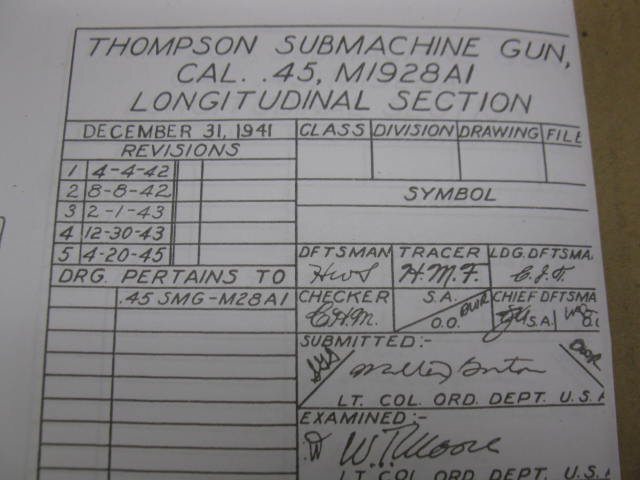 THOMPSON SUBMACHINE GUN,
CAL. .45, M1928A1
LONGITUDINAL SECTION
DECEMBER 31, 1941
REVISIONS
1 4-4-42
2 8-8-42
3 2-1-43
4 12-30-43
5 4-20-45
DRG. PERTAINS TO
.45 SMG-M28A1
CLASS DIVISION DRAWING FILE
SYMBOL
DFTSMAN TRACER LDG. DFTSMA
HWS H.M.F. C.J.F.
CHECKER S.A. CHIEF DFTSMA
C.H.M. O.O. S.A.
SUBMITTED:-
LT. COL. ORD. DEPT. U.S.A
EXAMINED:-
W.T. Moore
LT. COL. ORD. DEPT. U.S.